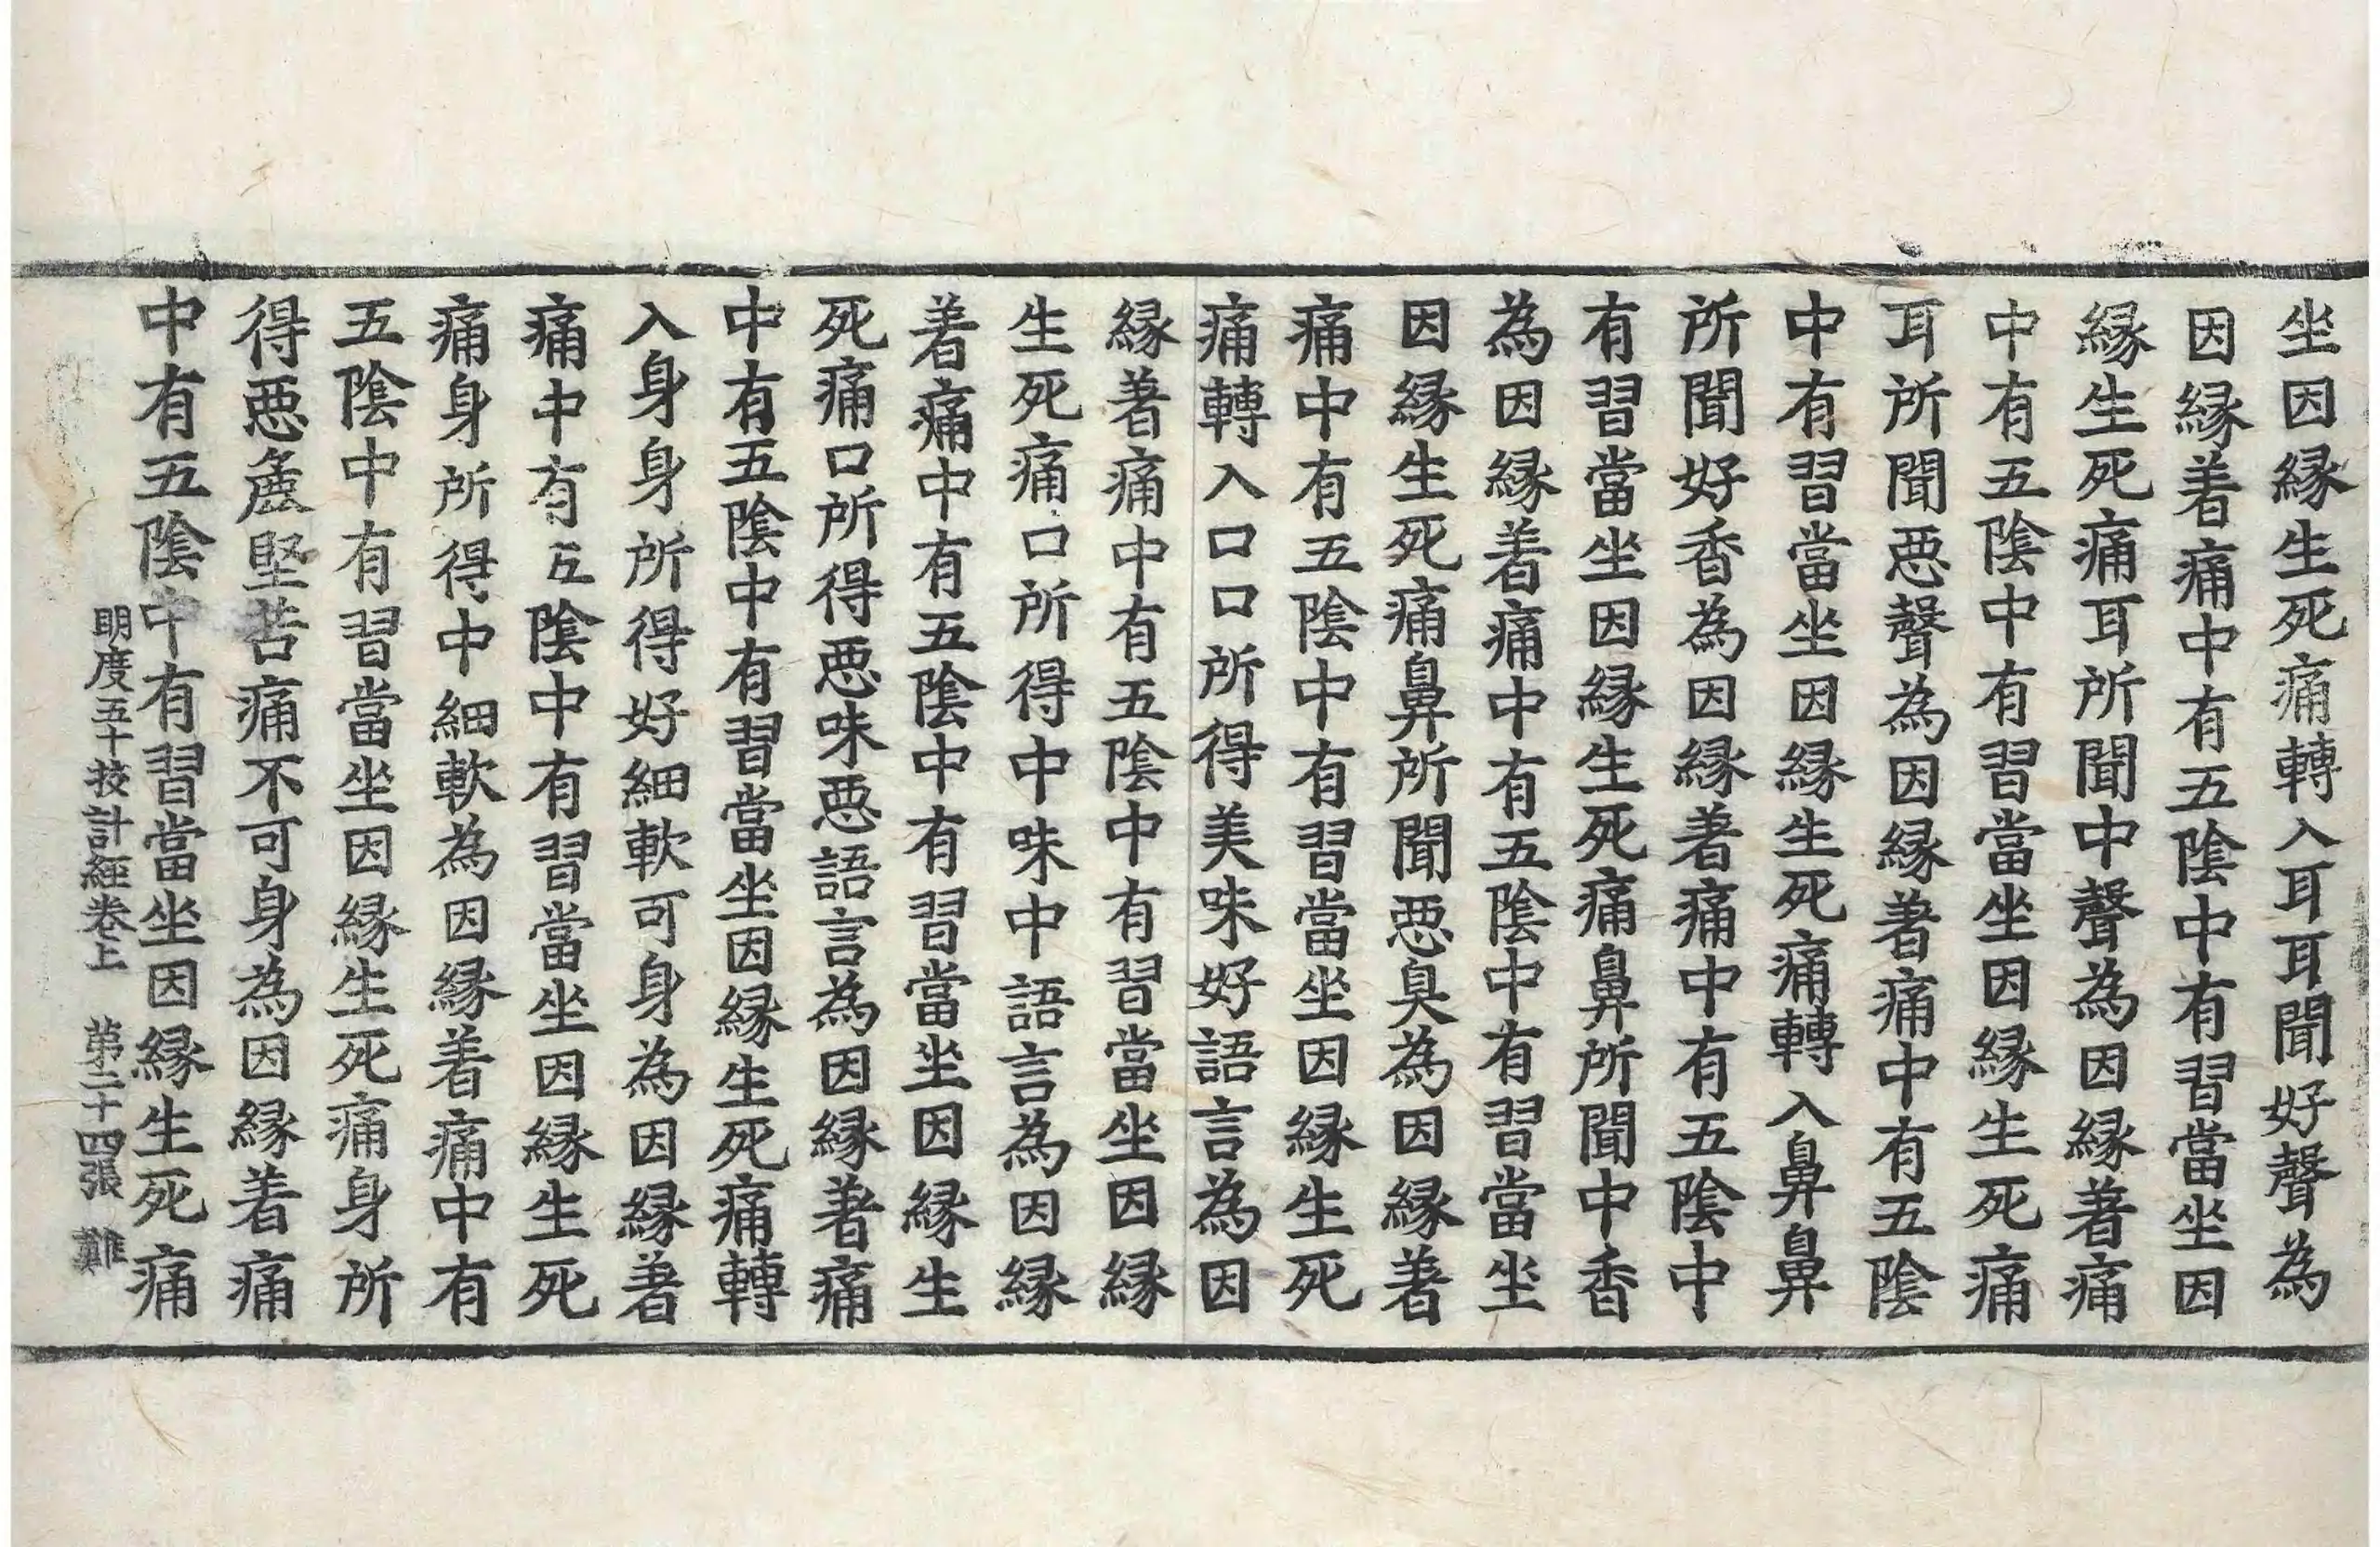 坐因縁生死痛轉入耳耳聞好聲為
因縁著痛中有五陰中有習當坐因
縁生死痛耳所聞中聲為因縁著痛
中有五陰中有習當坐因縁生死痛
耳所聞惡聲為因縁著痛中有五陰
中有習當坐因縁生死痛轉入鼻鼻
所聞好香為因縁著痛中有五陰中
有習當坐因縁生死痛鼻所聞中香
為因縁著痛中有五陰中有習當坐
因縁生死痛鼻所聞惡臭為因縁著
痛中有五陰中有習當坐因縁生死
痛轉入口口所得美味好語言為因
縁著痛中有五陰中有習當坐因縁
生死痛口所得中味中語言為因縁
著痛中有五陰中有習當坐因縁生
死痛口所得惡味惡語言為因縁著痛
中有五陰中有習當坐因縁生死痛轉
入身身所得好細軟可身為因縁著
痛中有五陰中有習當坐因縁生死
痛身所得中細軟為因縁著痛中有
五陰中有習當坐因縁生死痛身所
得惡麁堅苦痛不可身為因縁著痛
中有五陰中有習當坐因縁生死痛
明度五十挍計經卷上 第二十四張 難